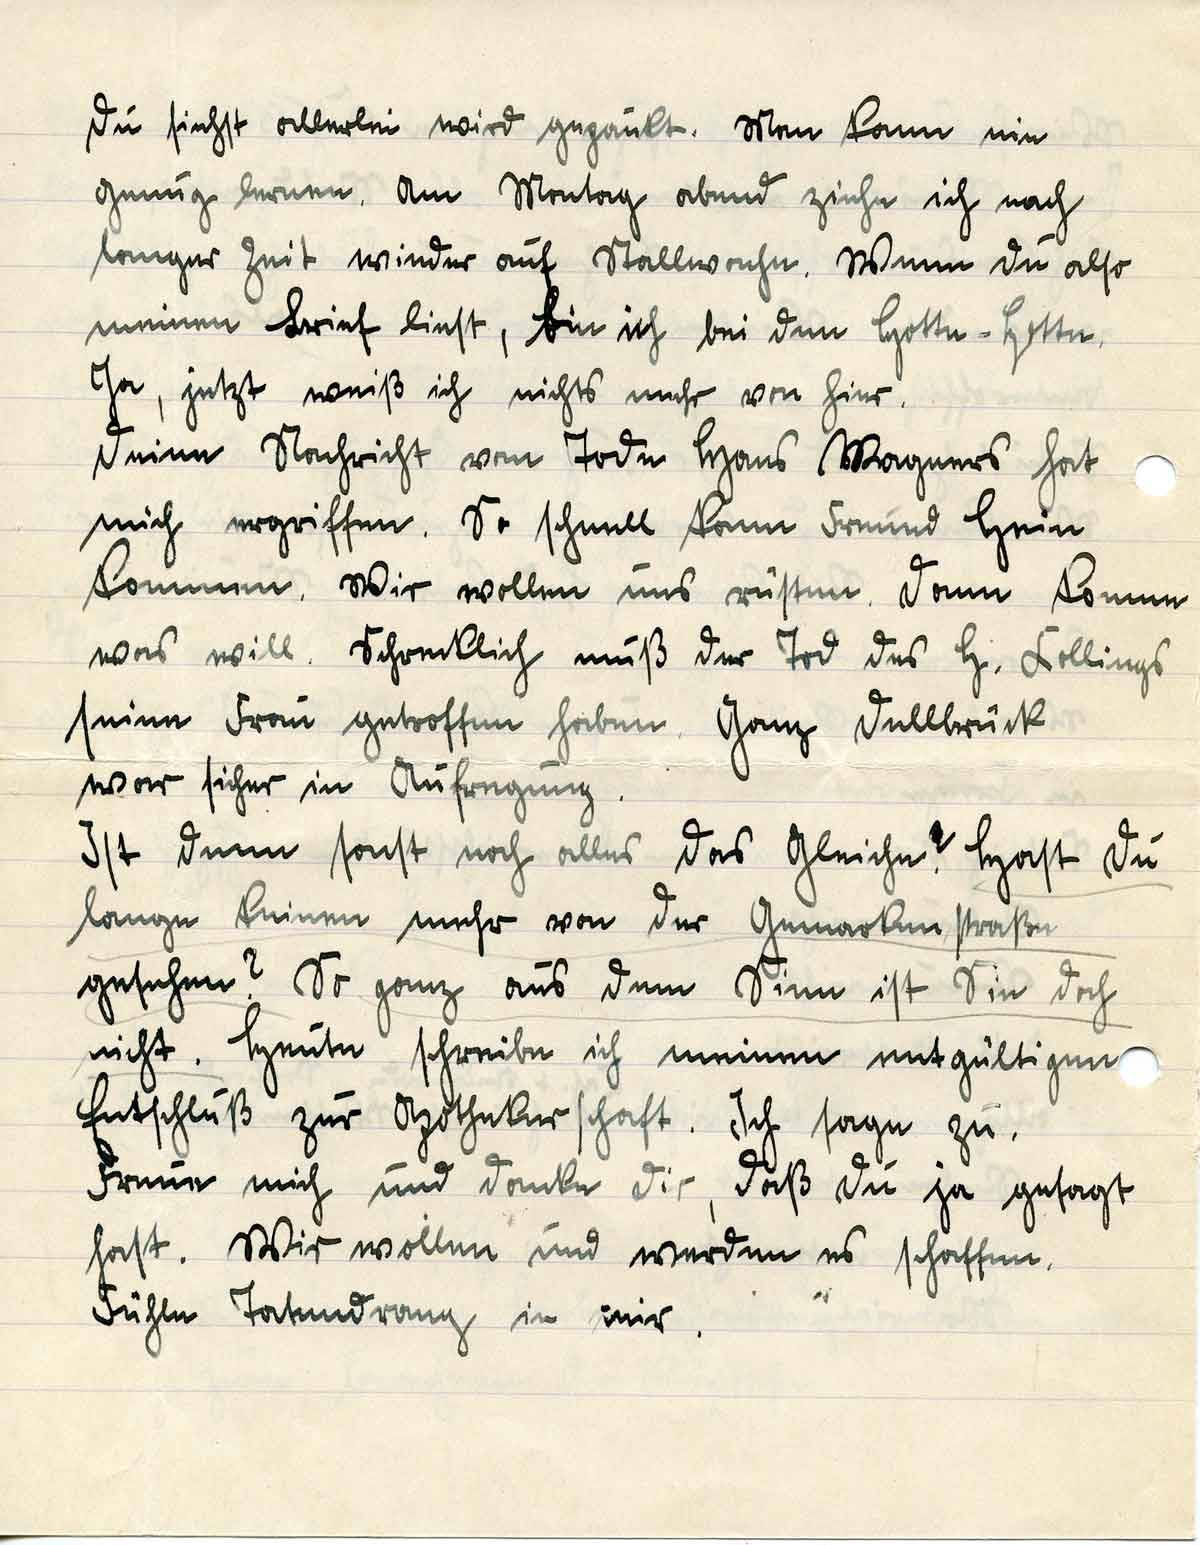 Du siehst allerlei wird gepaukt. Man kann nie
genug lernen. Am Montag abend ziehe ich nach
langer Zeit wieder auf Stallwache. Wenn du also
meinen Brief liest, bin ich bei den Hotte-Hotte.
Ja, jetzt weiß ich nichts mehr von hier.
Deine Nachricht vom Tode Hans Wagners hat
mich ergriffen. So schnell kann Freund Hein
kommen. Wir wollen uns rüsten. Dann komme
was will. Schrecklich muß der Tod des H. Kollings
seine Frau getroffen haben. Ganz Dellbrück
war sicher in Aufregung.
Ist denn sonst noch alles das Gleiche? Hast Du
lange keinen mehr von der Gemarkenstraße
gesehen? So ganz aus dem Sinn ist Sie doch
nicht. Heute schreibe ich meinen entgültigen
Entschluß zur Apothekerschaft. Ich sage zu.
Freue mich und danke dir, daß Du ja gesagt
hast. Wir wollen und werden es schaffen.
Fühle Tatendrang in mir.